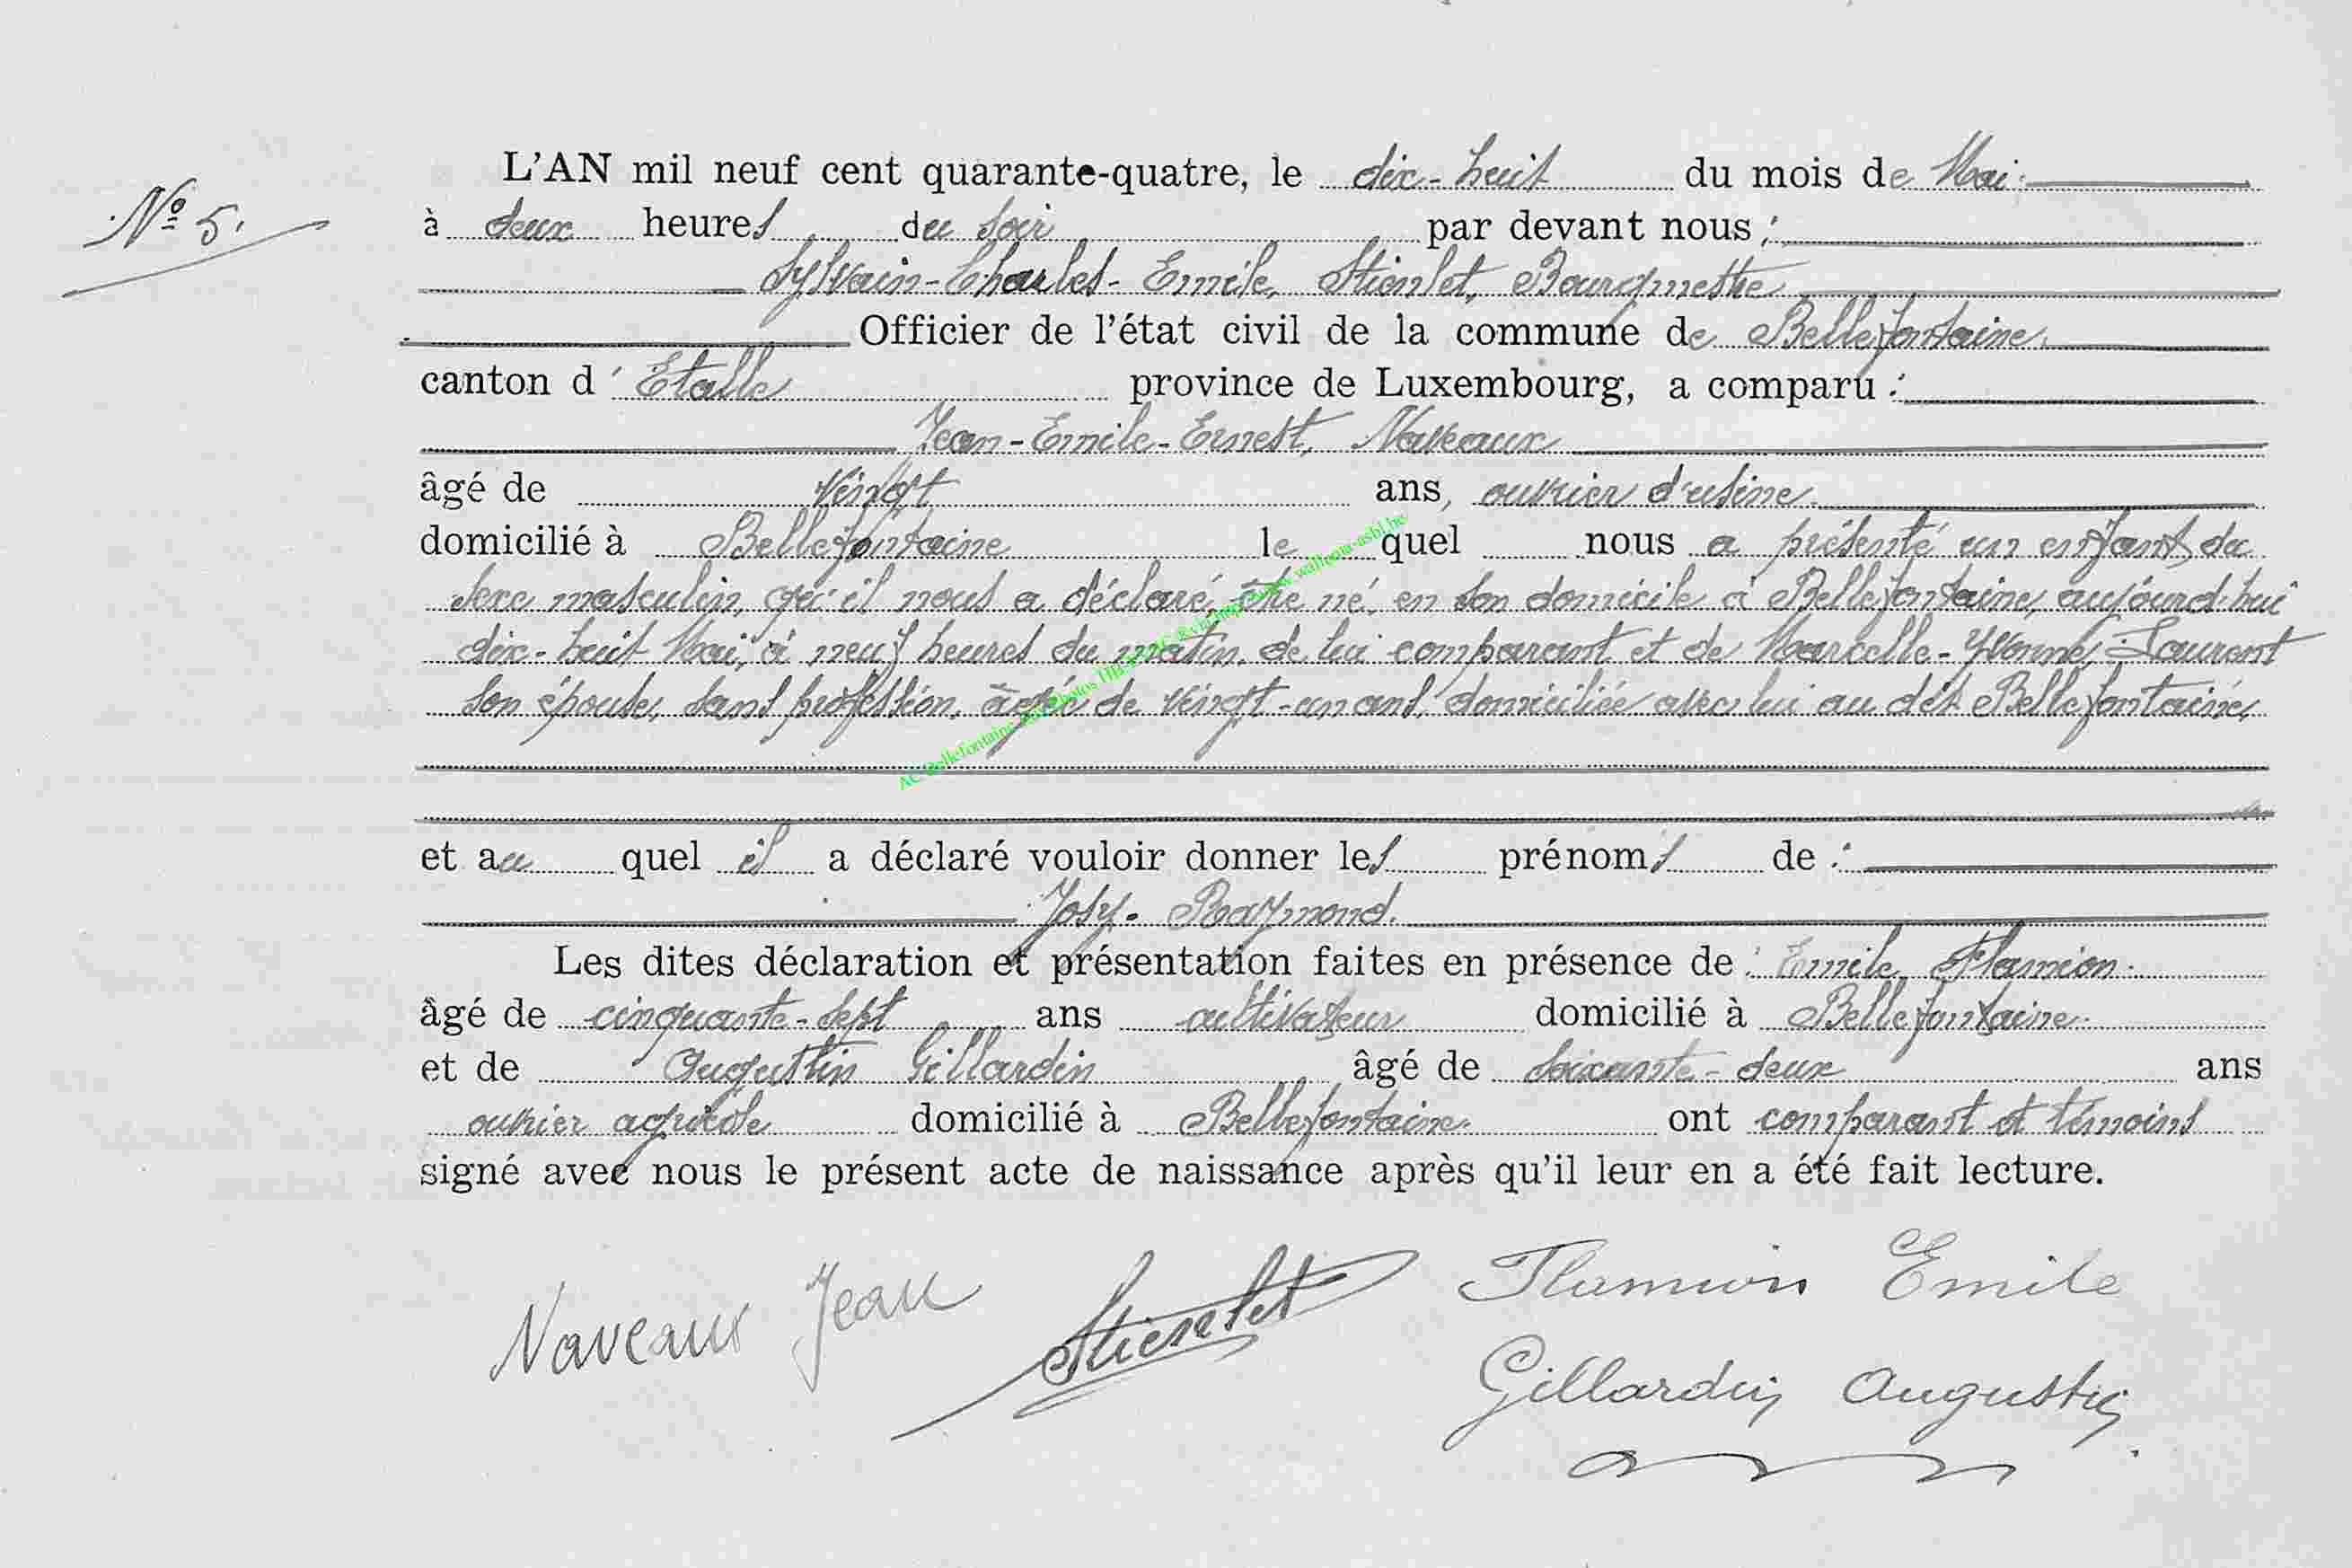 N° 5.
L'AN mil neuf cent quarante-quatre, le dix-huit du mois de Mai
à deux heures du soir par devant nous :
Sylvain-Charles-Emile, Stienlet, Bourgmestre
Officier de l'état civil de la commune de Bellefontaine.
canton d'Etalle province de Luxembourg, a comparu :
Jean-Emile-Ernest, Naveaux
âgé de vingt ans, ouvrier d'usine
domicilié à Bellefontaine lequel nous a présenté un enfant du
sexe masculin, qu'il nous a déclaré, être né, en son domicile à Bellefontaine, aujourd'hui
dix-huit Mai, à neuf heures du matin, de lui comparant et de Marcelle-Yvonne, Laurent
son épouse, sans profession, âgée de vingt-un ans, domiciliée avec lui au dit Bellefontaine,
et au quel il a déclaré vouloir donner les prénoms de :
Josy-Raymond.
Les dites déclaration et présentation faites en présence de : Emile Flamion.
âgé de cinquante-sept ans cultivateur domicilié à Bellefontaine.
et de Augustin Gillardin âgé de soixante-deux ans
ouvrier agricole domicilié à Bellefontaine. ont comparant et témoins
signé avec nous le présent acte de naissance après qu'il leur en a été fait lecture.
Naveaux Jean Stienlet Flamion Emile
Gillardin Augustin